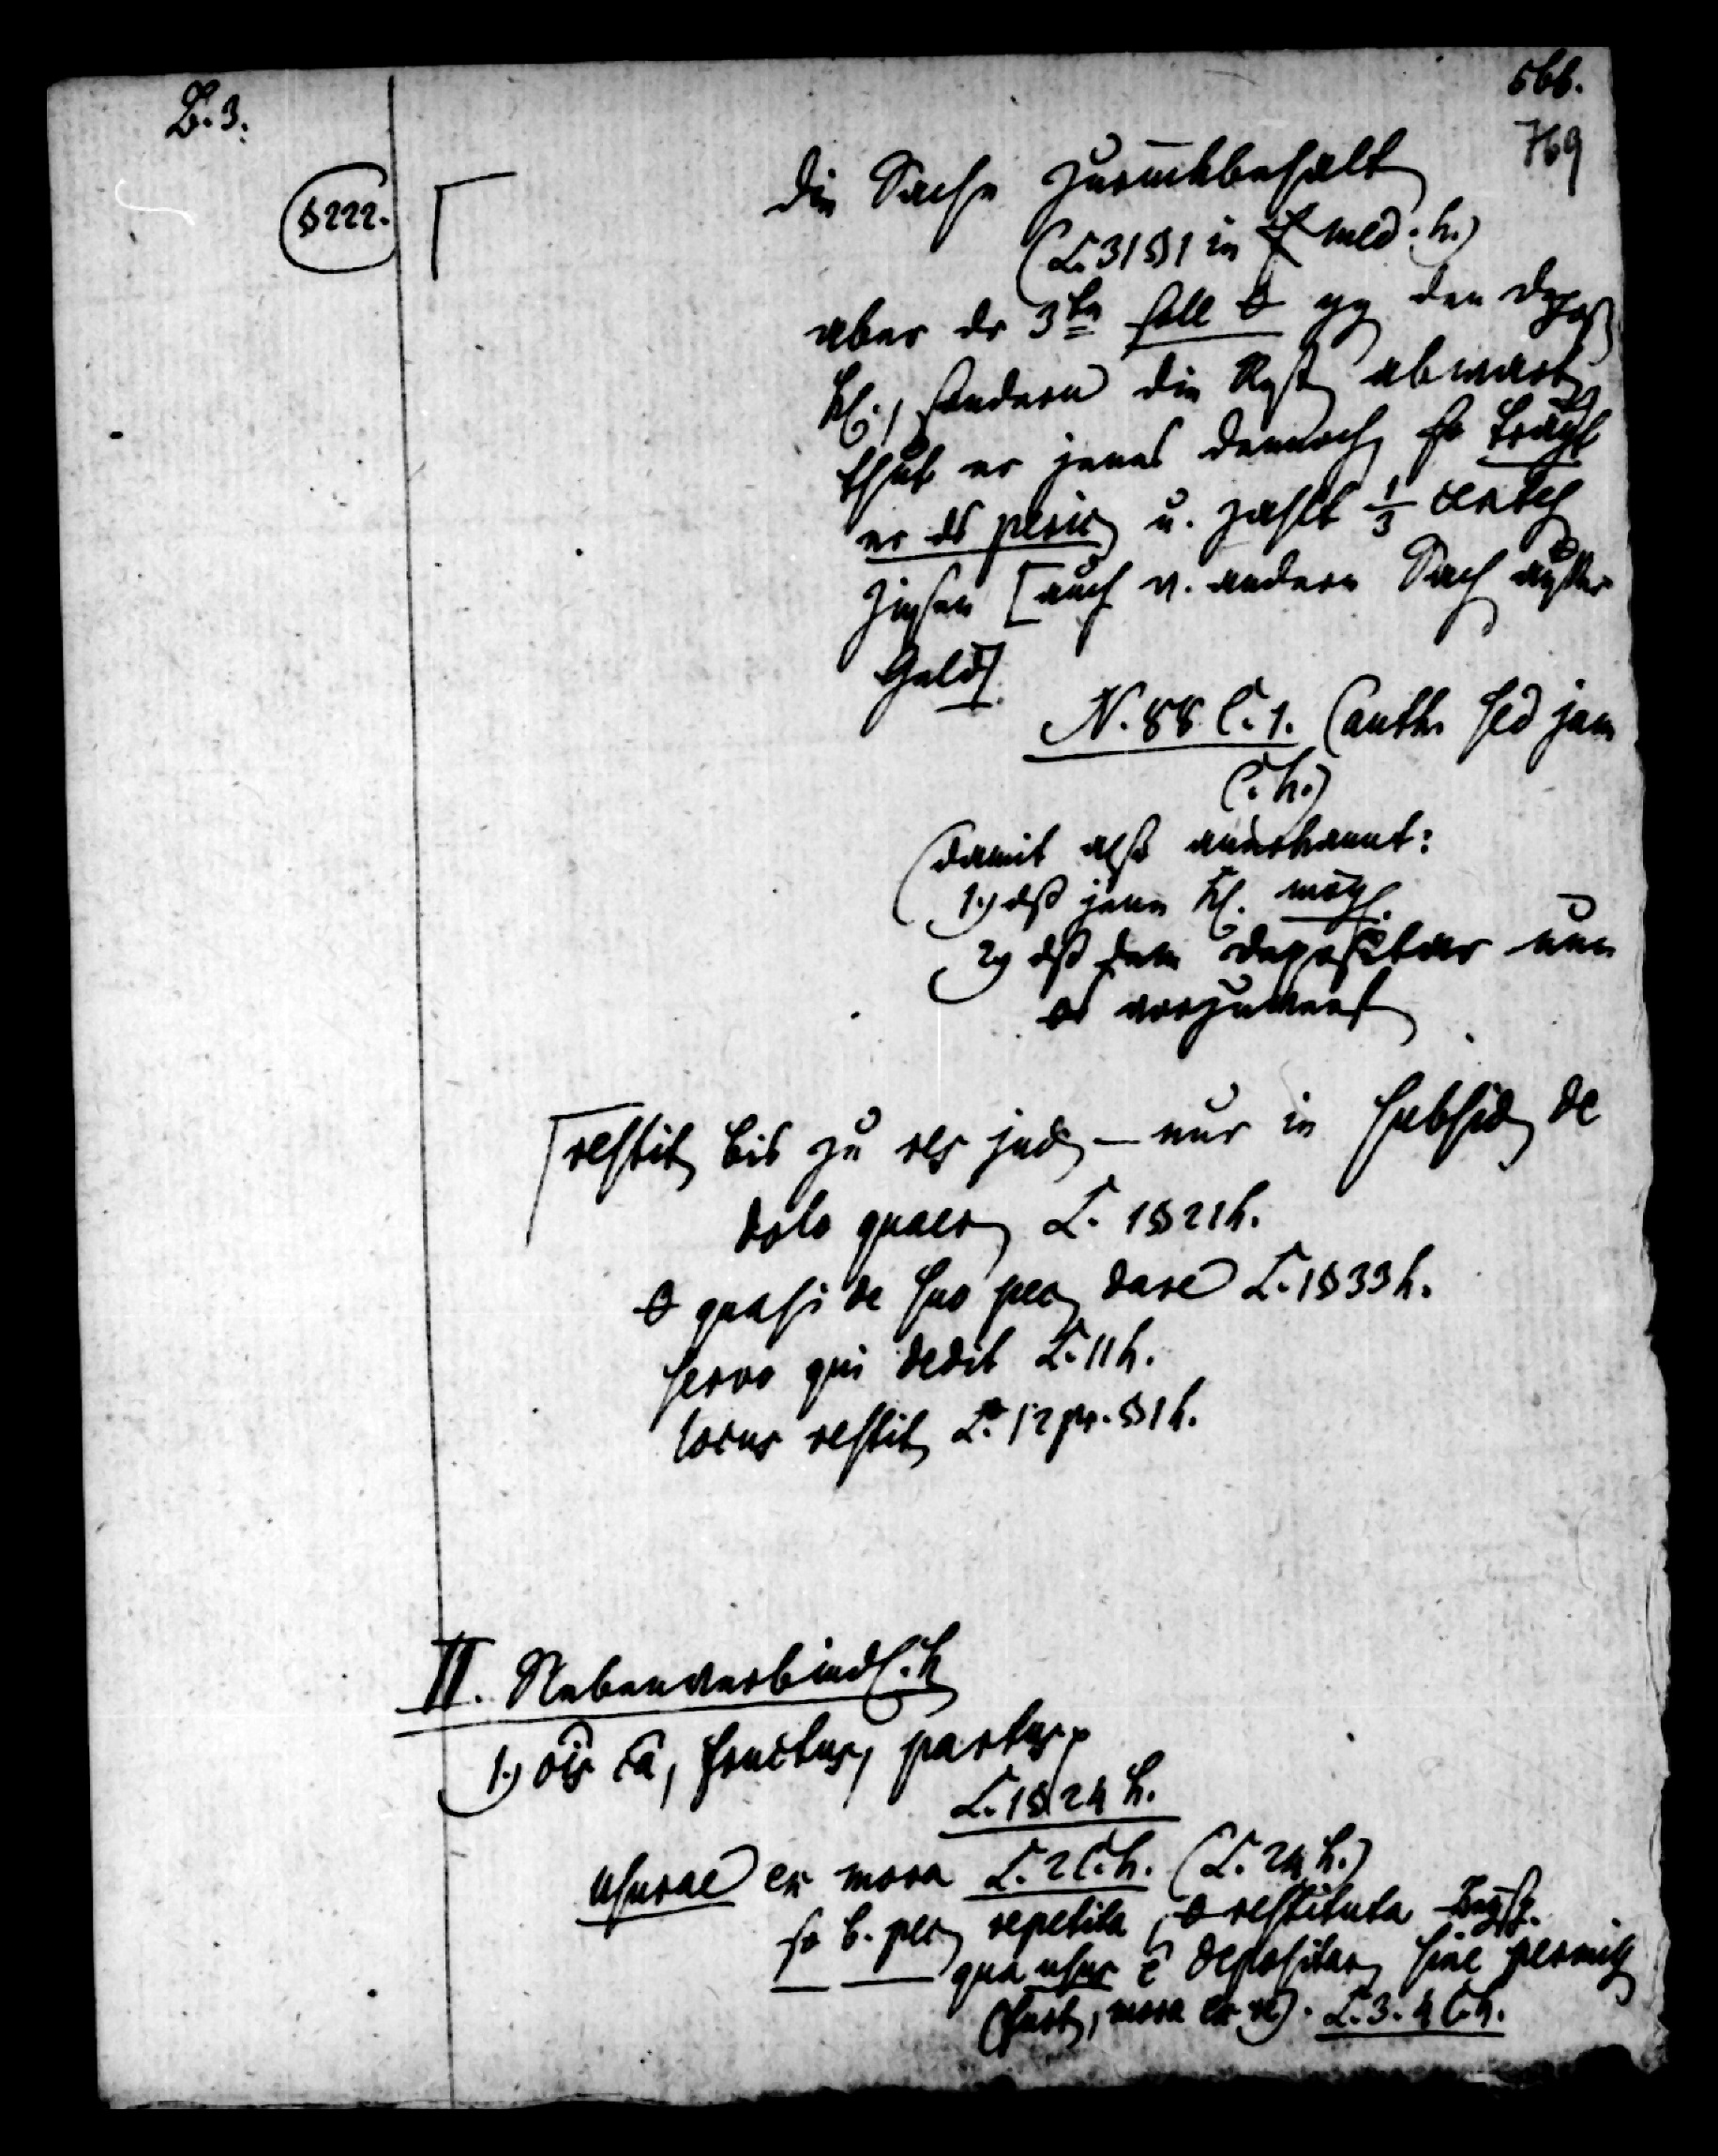 B. 3.
566.
769
§ 222.
die Sache zurückbehalt
(L. 31 § 1 in med. h.)
aber dr 3te soll gg den Depos
Kl., sondern die Rest abwart
thut er jenes dennoch so trägt
er ds peric u. zahlt 1/3 cent
Zinsen [auch v. andern Sach außer
Geld].
N. 88 C. 1. (auth. sed jam
C. h.)
(damit also anerkannt:
1.) dß jene Kl. mögl.
2) dß dem Depositar nun
vorzuwerf
restit bis zu res jud – nur in subsid de
dolo quaer L. 1 § 21 h.
quasi de suo pec dare L. 1 § 33 h.
servo qui dedit L. 11 h.
locus restit L. 12 pr. § 1 h.
II. Nebenverbindl.k
1.) ois ca, fructus, partus
L. 1 § 24 h.
usurae ex mora L. 2 C. h. (L. 24 h.)
so b. pec repetita, restituta
qua usus e depositar sine permiss
(furt, mora ex re). L. 3. 4 C. h.